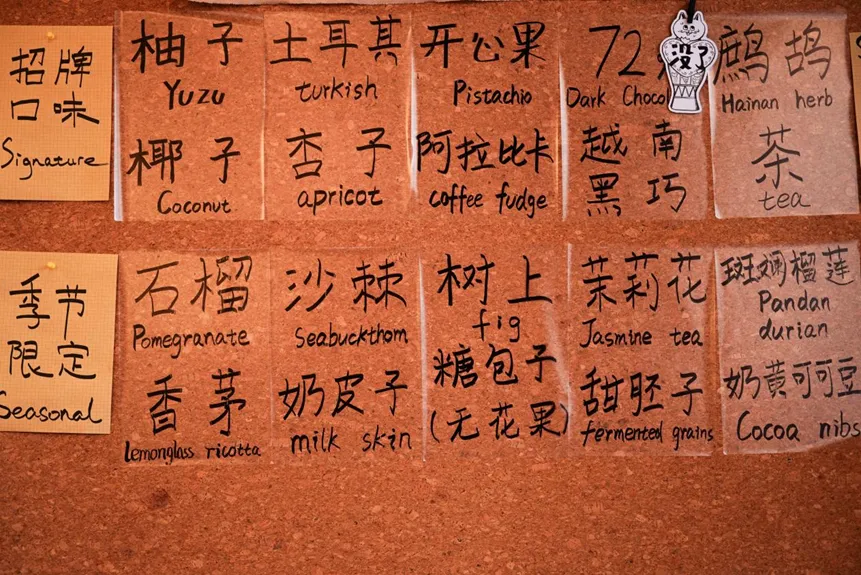 招牌
口味
Signature
柚子
Yuzu
椰子
Coconut
土耳其
turkish
杏子
apricot
开心果
Pistachio
阿拉比卡
coffee fudge
72
Dark Chocol
越南
黑巧
没了
鹧鸪
Hainan herb
茶
tea
季节
限定
Seasonal
石榴
Pomegranate
香茅
Lemonglass ricotta
沙棘
Seabuckthom
奶皮子
milk skin
树上
fig
糖包子
(无花果)
茉莉花
Jasmine tea
甜胚子
fermented grains
斑斓榴莲
Pandan
durian
奶黄可可豆
Cocoa nibs